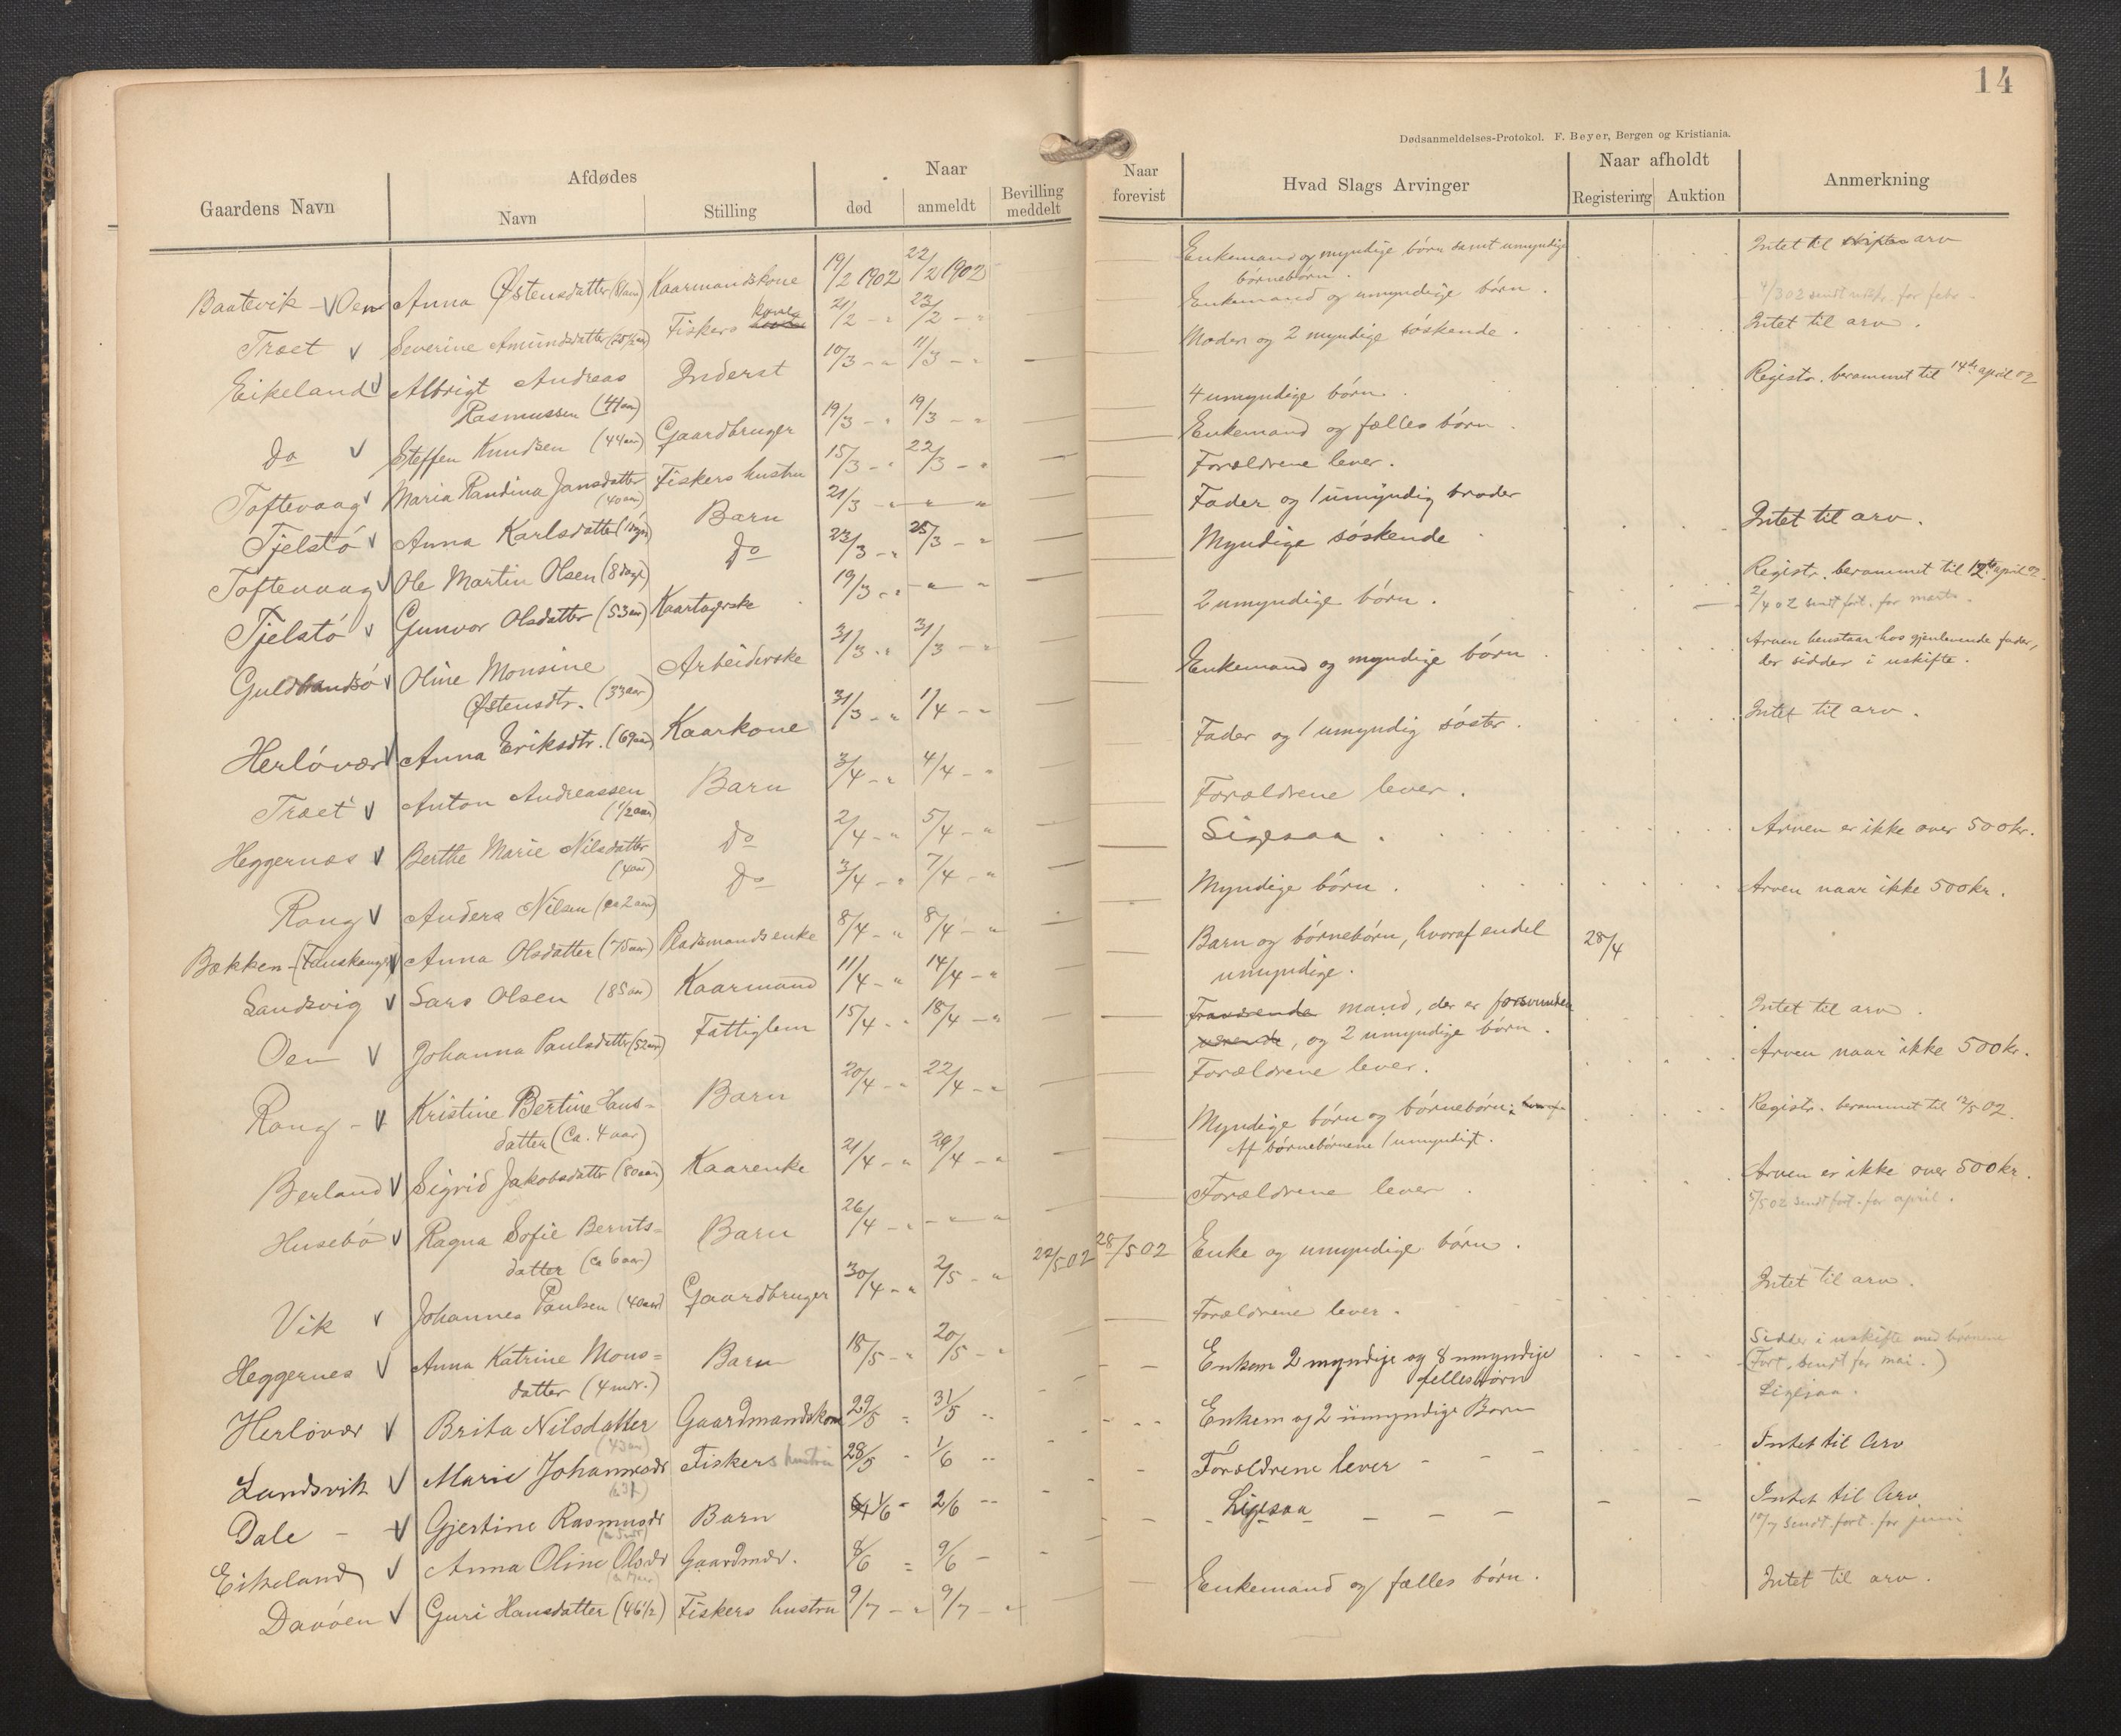 14
Dødsanmeldelses-Protokol. F. Beyer, Bergen og Kristiania.
Gaardens Navn
Afdødes
Navn
Stilling
Naar
død
anmeldt
Bevilling meddelt
Naar forevist
Hvad Slags Arvinger
Naar afholdt
Registering
Auktion
Anmerkning
Baatevik - Oen Anna Østensdatter Kaarmandskone 19/2 1902 22/2 1902
Træet Severine Amundsdatter Fiskers kone 21/2 - " 23/2 - "
Eikeland Albrigt Andreas Inderst 10/3 - " 11/3 - "
Rasmussen (41 aar)
do Steffen Knudsen (44 aar) Gaardbruger 19/3 - " 19/3 - "
Toftevaag Maria Randina Jansdatter Fiskers hustru 15/3 - " 22/3 - "
(40 aar)
Tjelstø Anna Karlsdatter Barn 21/3 - " - "
Toftevaag Ole Martin Olsen (8 dage) do 23/3 - " 25/3 - "
Tjelstø Gunvor Olsdatter (53 aar) Kaartagerske 19/3 - " - "
Guldbrandsø Oline Monsine Arbeiderske 31/3 - " 31/3 - "
Østensdtr. (33 aar)
Herløvær Anna Eriksdtr. (69 aar) Kaarkone 31/3 - " 1/4 - "
Træet Anton Andreassen Barn 3/4 - " 4/4 - "
(1/2 aar)
Heggernæs Berthe Marie Nilsdatter do 2/4 - " 5/4 - "
(4 aar)
Rong Anders Nilsen (ca 2 aar) do 3/4 - " 7/4 - "
Bakken - (Fauskanger) Anna Olsdatter (75 aar) Pladsmandsenke 8/4 - " 8/4 - "
Landsvig Lars Olsen (85 aar) Kaarmand 11/4 - " 14/4 - "
Oen Johanna Paulsdatter (52 aar) Fattiglem 15/4 - " 18/4 - "
Rong - Kristine Bertine Hans- Barn 20/4 - " 22/4 - "
datter (Ca. 4 aar)
Berland Sigrid Jakobsdatter (80 aar) Kaarenke 21/4 - " 24/4 - "
Husebø Ragna Sofie Bernts- Barn 26/4 - " - "
datter (ca 6 aar)
Vik Johannes Paulsen (40 aar) Gaardbruger 30/4 - " 2/5 - " 22/5 02
Heggernes Anna Katrine Mons- Barn 18/5 - " 20/5 - "
datter (4 mdr.)
Herløvær Brita Nilsdatter Gaardmandskone 29/5 31/5
Landsvik Marie Johannesdr Fiskers hustru 28/5 1/6
Dale - Gjertine Rasmusdr Barn 1/6 - 2/6
Eikeland Anna Oline Olsdr Gaardmdr. 8/6 9/6
Davøen Guri Hansdatter (46 1/2) Fiskers hustru 9/7 - " 9/7 - "
Enkemand og myndige børn samt umyndige
børnebørn. Intet til arv
Enkemand og umyndige børn. 4/3 02 sendt for febr.
Moder og 2 myndige søskende. Intet til arv.
4 umyndige børn. Registr. berammet til 14de april 02
Enkemand og fælles børn.
Forældrene lever.
Fader og 1 umyndig broder
Myndige søskende Intet til arv.
2 umyndige børn. Registr. berammet til 12te april 02.
2/4 02 sendt fort. for marts.
Enkemand og myndige børn Arven henstaar hos gjenlevende fader,
der sidder i uskifte.
Fader og 1 umyndig søster. Intet til arv.
Forældrene lever.
Ligesaa. Arven er ikke over 500 kr.
Myndige børn. Arven naar ikke 500 kr.
Barn og børnebørn, hvoraf endel 28/4
umyndige.
Fraværende mand, der er forsvunden Intet til arv.
værende, og 2 umyndige børn.
Forældrene lever. Arven naar ikke 500 kr.
Myndige børn og børnebørn. Registr. berammet til 12/5 02.
Af børnebørnene 1 umyndigt.
Forældrene lever Arven er ikke over 500 kr.
5/5 02 sendt fort. for april.
28/5 02 Enke og umyndige børn.
Forældrene lever. Intet til arv.
Enkem 2 myndige og 8 umyndige Sidder i uskifte med børnene
fellesbørn (Fort. sendt for mai.)
Enkem og 2 umyndige Børn Ligesaa.
Forældrene lever - - Intet til Arv
Ligesaa Intet til Arv
10/7 sendt fort. for juni
Enkemand og fælles børn. Intet til arv.